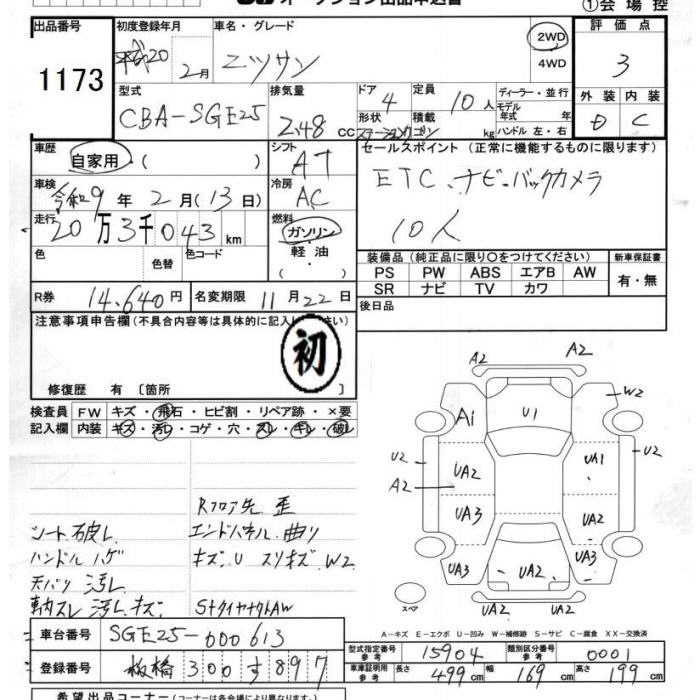 オークション出品申込書 ①会場控
出品番号 1173
初度登録年月 平成20 2月
車名・グレード ニッサン
2WD
4WD
評価点 3
外装 内装
D C
型式 CBA-SGE25
排気量 2.48 CC
ドア 4
定員 10人
形状 ステーションワゴン
積載 kg
ディーラー・並行
モデル年式 年式
ハンドル 左・右
車歴 自家用・( )
シフト AT
セールスポイント(正常に機能するものに限ります)
ETC、ナビ・バックカメラ
10人
車検 令和9年2月(13日)
冷房 AC
走行 20万3千043km
燃料 ガソリン・軽・油・( )
色 色替 色コード
R券 14,640円
名変期限 11月22日
装備品(純正品に限り〇をつけてください)
PS PW ABS エアB AW
SR ナビ TV カワ
新車保証書 有・無
後日品
注意事項申告欄(不具合内容等は具体的に記入ください)
初
修復歴 有〔箇所
検査員記入欄 FW キズ・飛石・ヒビ割・リペア跡・×要
内装 キズ・汚レ・コゲ・穴・スレ・キレ・破レ
シート破レ
ハンドルハゲ
天バリ汚レ
車内スレ 汚レ キズ
Rフロア先歪
エンドパネル曲り
キズ、U スリキズ W2
A2 A2
W2
A1 U1
U2 UA2 UA1 U2
A2
UA3 UA2
UA3 UA2 UA3
UA2 UA2
スペア
A-キズ E-エクボ U-凹み W-補修跡 S-サビ C-腐食 XX-交換済
車台番号 SGE25-000613
登録番号 板橋 300 す 897
型式指定番号 参考 15904
類別区分番号 参考 0001
車庫証明用 参考 長さ 499cm 幅 169cm 高さ 199cm
希望出品コーナー(コーナーは各会場により異なります)